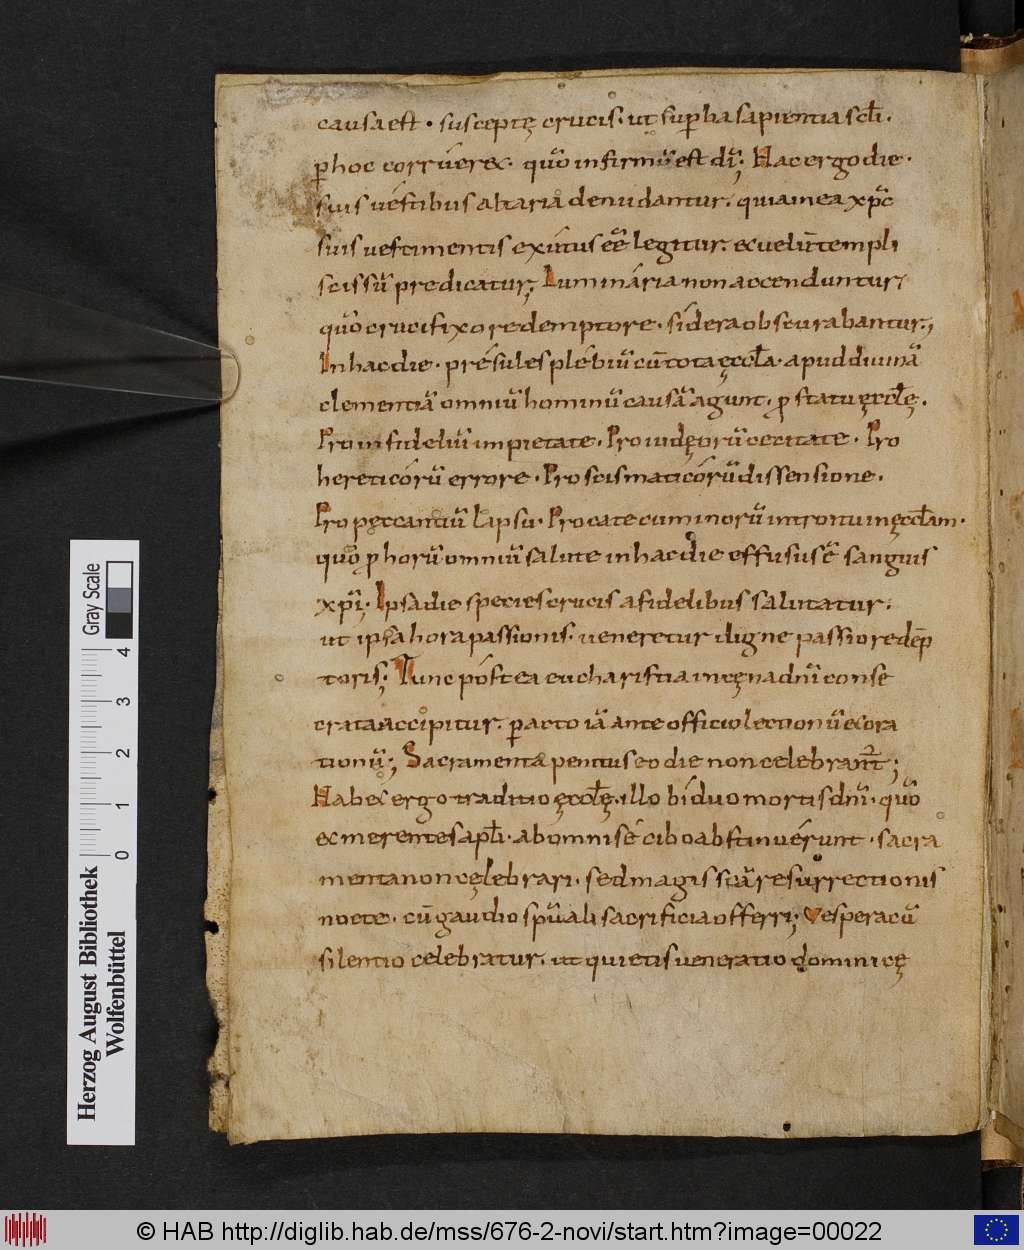 causa est · susceptę crucis. ut sup̄ba sapientia sc̄li.
p̄ hoc corrueret. quō infirmū est dī; Hac ergo die.
suis uestibus altaria denudantur. quia in ea xp̄c
suis uestimentis exutus eē legitur. et uelū templi
scissū predicatur; Luminaria non accenduntur.
quō crucifixo redemptore. sidera obscurabantur.;
In hac die. présules plébiū cū tota ęccl̄a. apud diuinā
clementiā omniū hominū causā agunt. ꝓ statu ęccl̄ę.
Pro infideliū impietate. Pro iudęorū cecitate. Pro
hereticórū errore. Pro scismaticórū dissensione.
Pro pęccantiū lapsu. Pro catecuminorū introitu in ęccl̄am.
quō ꝓ horū omniū salute in hac die effusus ē sanguis
xp̄i. Ipsa die species crucis a fidelibus salutatur.
ut ipsa hora passionis. ueneretur digne passio redēp
toris; Tunc póst ea eucharistia in cęna dn̄i conse
crata accipitur. p̄acto iā ante officio lectionū et ora
tionū; Sacramenta penitus eo die non celebrant̄;
Habet ergo traditio ęccl̄ę. illo bíduo mortis dn̄i. quō
et merentes apl̄i. ab omni se cibo abstinuérunt. sacra
menta non cęlebrari. sed magis sc̄a resurrectionis
nocte. cū gaudio sp̄uali sacrificia offerri; Vespera cū
silentio celebratur. ut quietis ueneratio dominicę
Herzog August Bibliothek
Wolfenbüttel
Gray Scale
0 1 2 3 4
© HAB http://diglib.hab.de/mss/676-2-novi/start.htm?image=00022